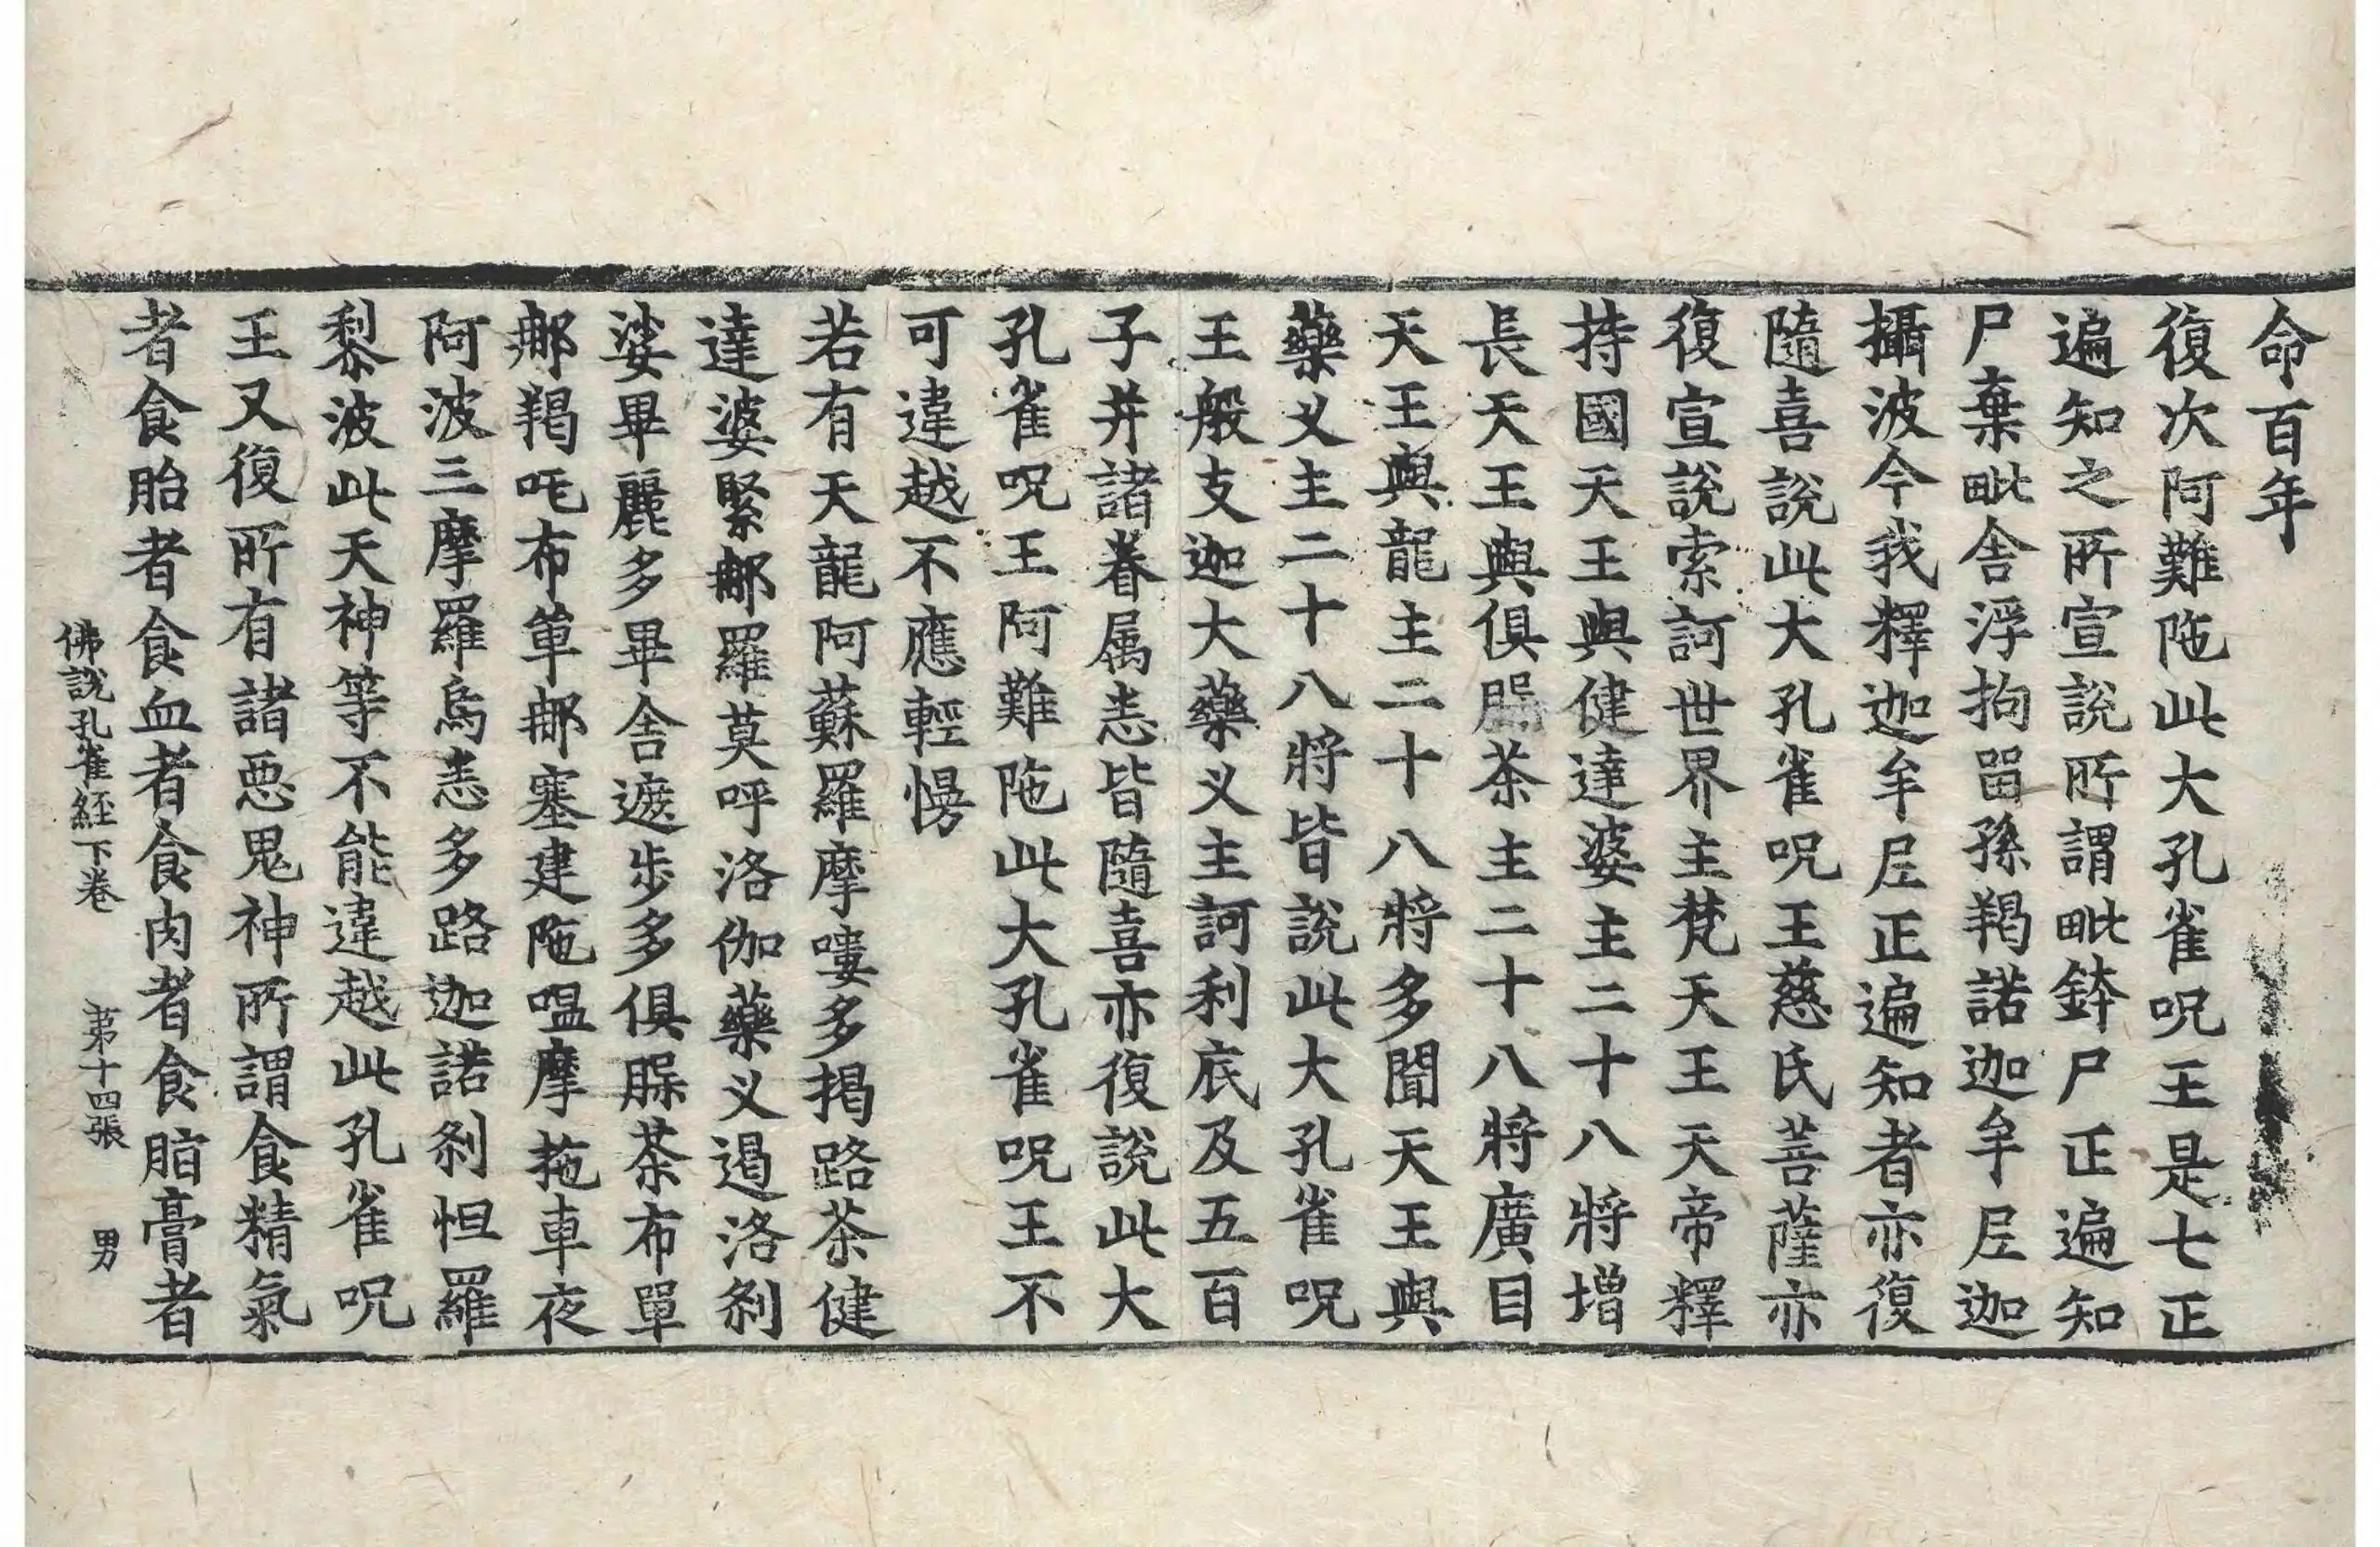 命百年
復次阿難陁此大孔雀呪王是七正
遍知之所宣說所謂毗鉢尸正遍知
尸棄毗舍浮拘留孫羯諾迦牟尼迦
攝波今我釋迦牟尼正遍知者亦復
隨喜說此大孔雀呪王慈氏菩薩亦
復宣說索訶世界主梵天王天帝釋
持國天王與健達婆主二十八將增
長天王與俱腶茶主二十八將廣目
天王與龍主二十八將多聞天王與
藥义主二十八將皆說此大孔雀呪
王般支迦大藥义主訶利底及五百
子并諸眷属悉皆隨喜亦復說此大
孔雀呪王阿難陁此大孔雀呪王不
可違越不應輕慢
若有天龍阿蘇羅摩嘍多揭路茶健
達婆緊郍羅莫呼洛伽藥义遏洛刹
娑畢麗多畢舍遮步多俱腶茶布單
郍羯吒布單郍塞建陁嗢摩拖車夜
阿波三摩羅烏悉多路迦諾刹怛羅
黎波此天神等不能違越此孔雀呪
王又復所有諸惡鬼神所謂食精氣
者食胎者食血者食肉者食脂膏者
佛說孔雀経下卷 第十四張 男